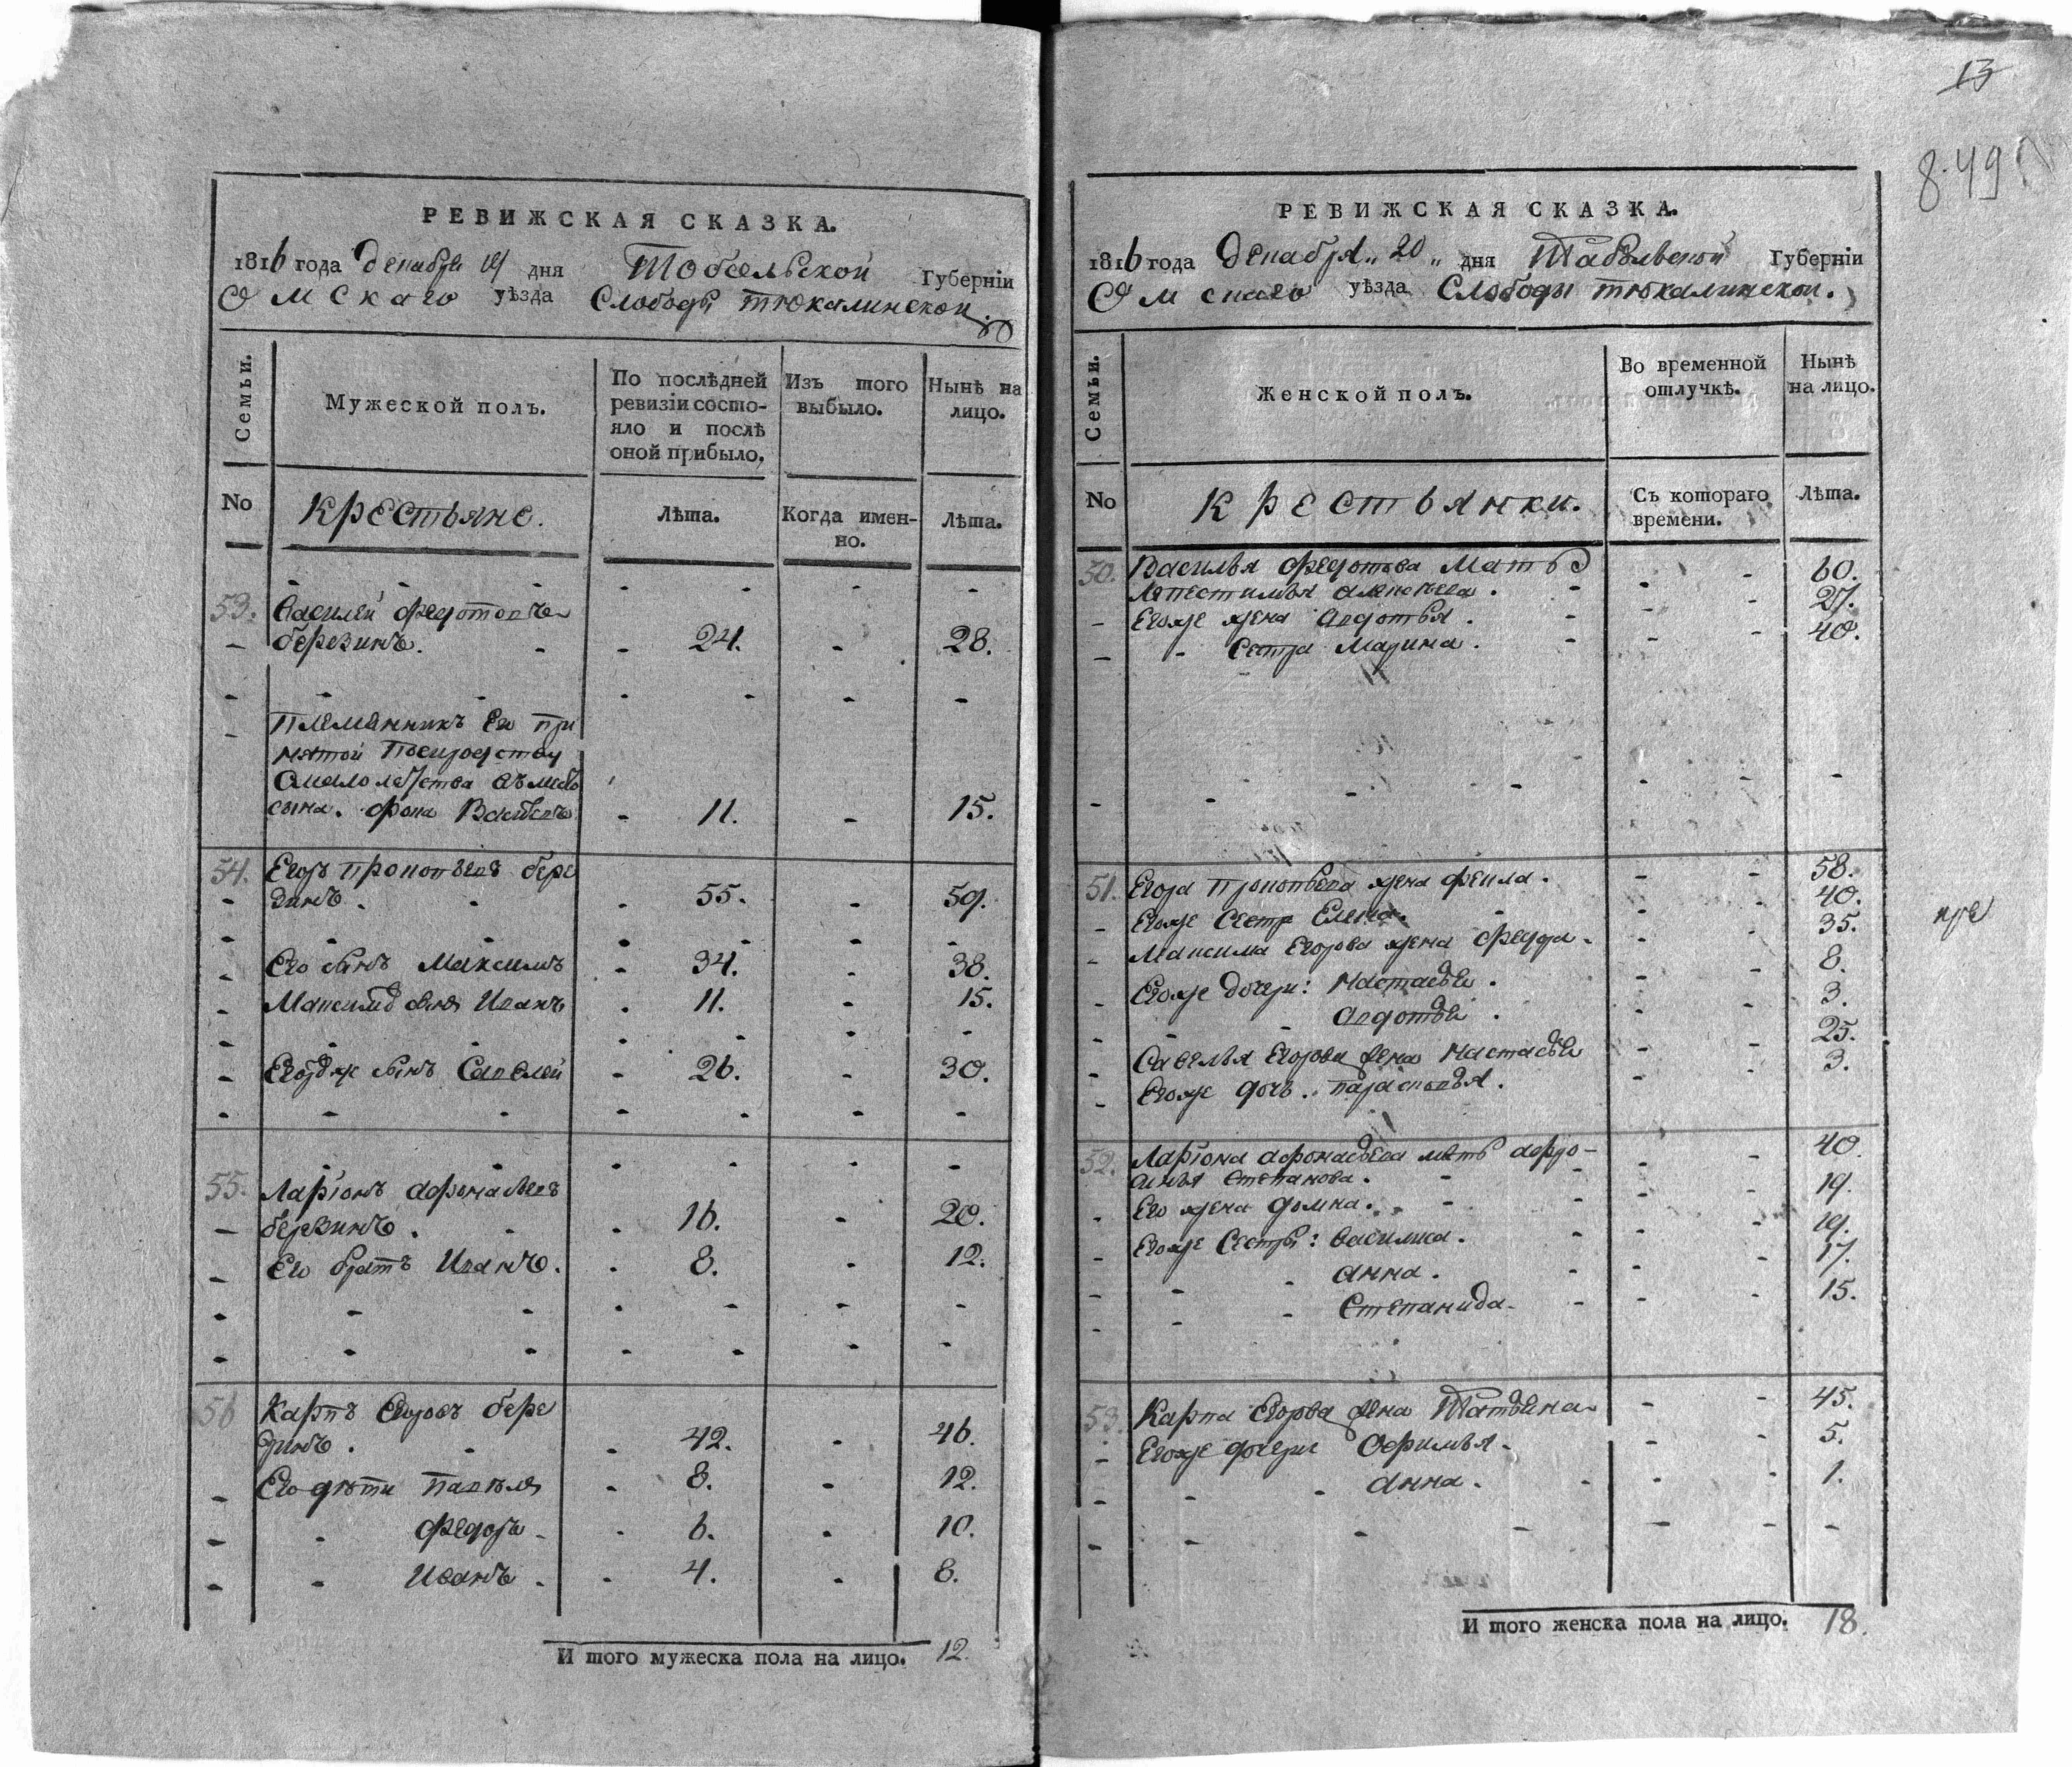 РЕВИЖСКАЯ СКАЗКА.
1816 года декабря дня Тобольской Губерніи
Омскаго уѣзда Слободы тюкалинской
Семьи.
Мужеской полъ.
По послѣдней ревизіи состо-
яло и послѣ
оной прибыло.
Изъ того выбыло.
Нынѣ на лицо.
No
Крестьяне.
Лѣта.
Когда имен-
но.
Лѣта.
53. Василей Федотовъ
березинъ. 24. 28.
Племянникъ Его при
нятой
вмѣсто
сына. 11. 15.
54. Егоръ Прокопьевъ бере
зинъ. 55. 59.
Его сынъ Максимъ 34. 38.
Максима сынъ Иванъ 11. 15.
сынъ Савелей 26. 30.
55. Ларіонъ Афонасьевъ
березинъ. 16. 20.
Его братъ Иванъ. 8. 12.
56 Карпъ Егоровъ бере
зинъ. 42. 46.
Его дѣти Павелъ 8. 12.
Федоръ 6. 10.
Иванъ. 4. 8.
И того мужеска пола на лицо. 12.
13
8.49
РЕВИЖСКАЯ СКАЗКА.
1816 года Декабря „ 20 „ дня Табольской Губерніи
Омскаго уѣзда Слободы тюкалинской.
Семьи.
Женской полъ.
Во временной
отлучкѣ.
Нынѣ
на лицо.
No
Крестьянки.
Съ котораго
времени.
Лѣта.
50. Василья Федотова Мать
60.
Егоже жена Авдотья. 27.
Сестра Марина. 40.
51. Егора Прокопьева жена Фекла. 58.
Егоже Сестр Елена. 40.
Максима Егорова жена 35.
Егоже дочери: Настасья. 8.
Авдотья. 3.
Савелья Егорова жена Настасья 25.
Егоже дочь. парасковья. 3.
52. Ларіона Афонасьева мать афро-
синья Степанова. 40.
Его жена домна. 19.
Егоже Сестры: Василиса. 19.
анна. 17.
Степанида. 15.
53. Карпа Егорова жена Татьяна 45.
Егоже дочери Офимья. 5.
анна. 1.
И того женска пола на лицо. 18.